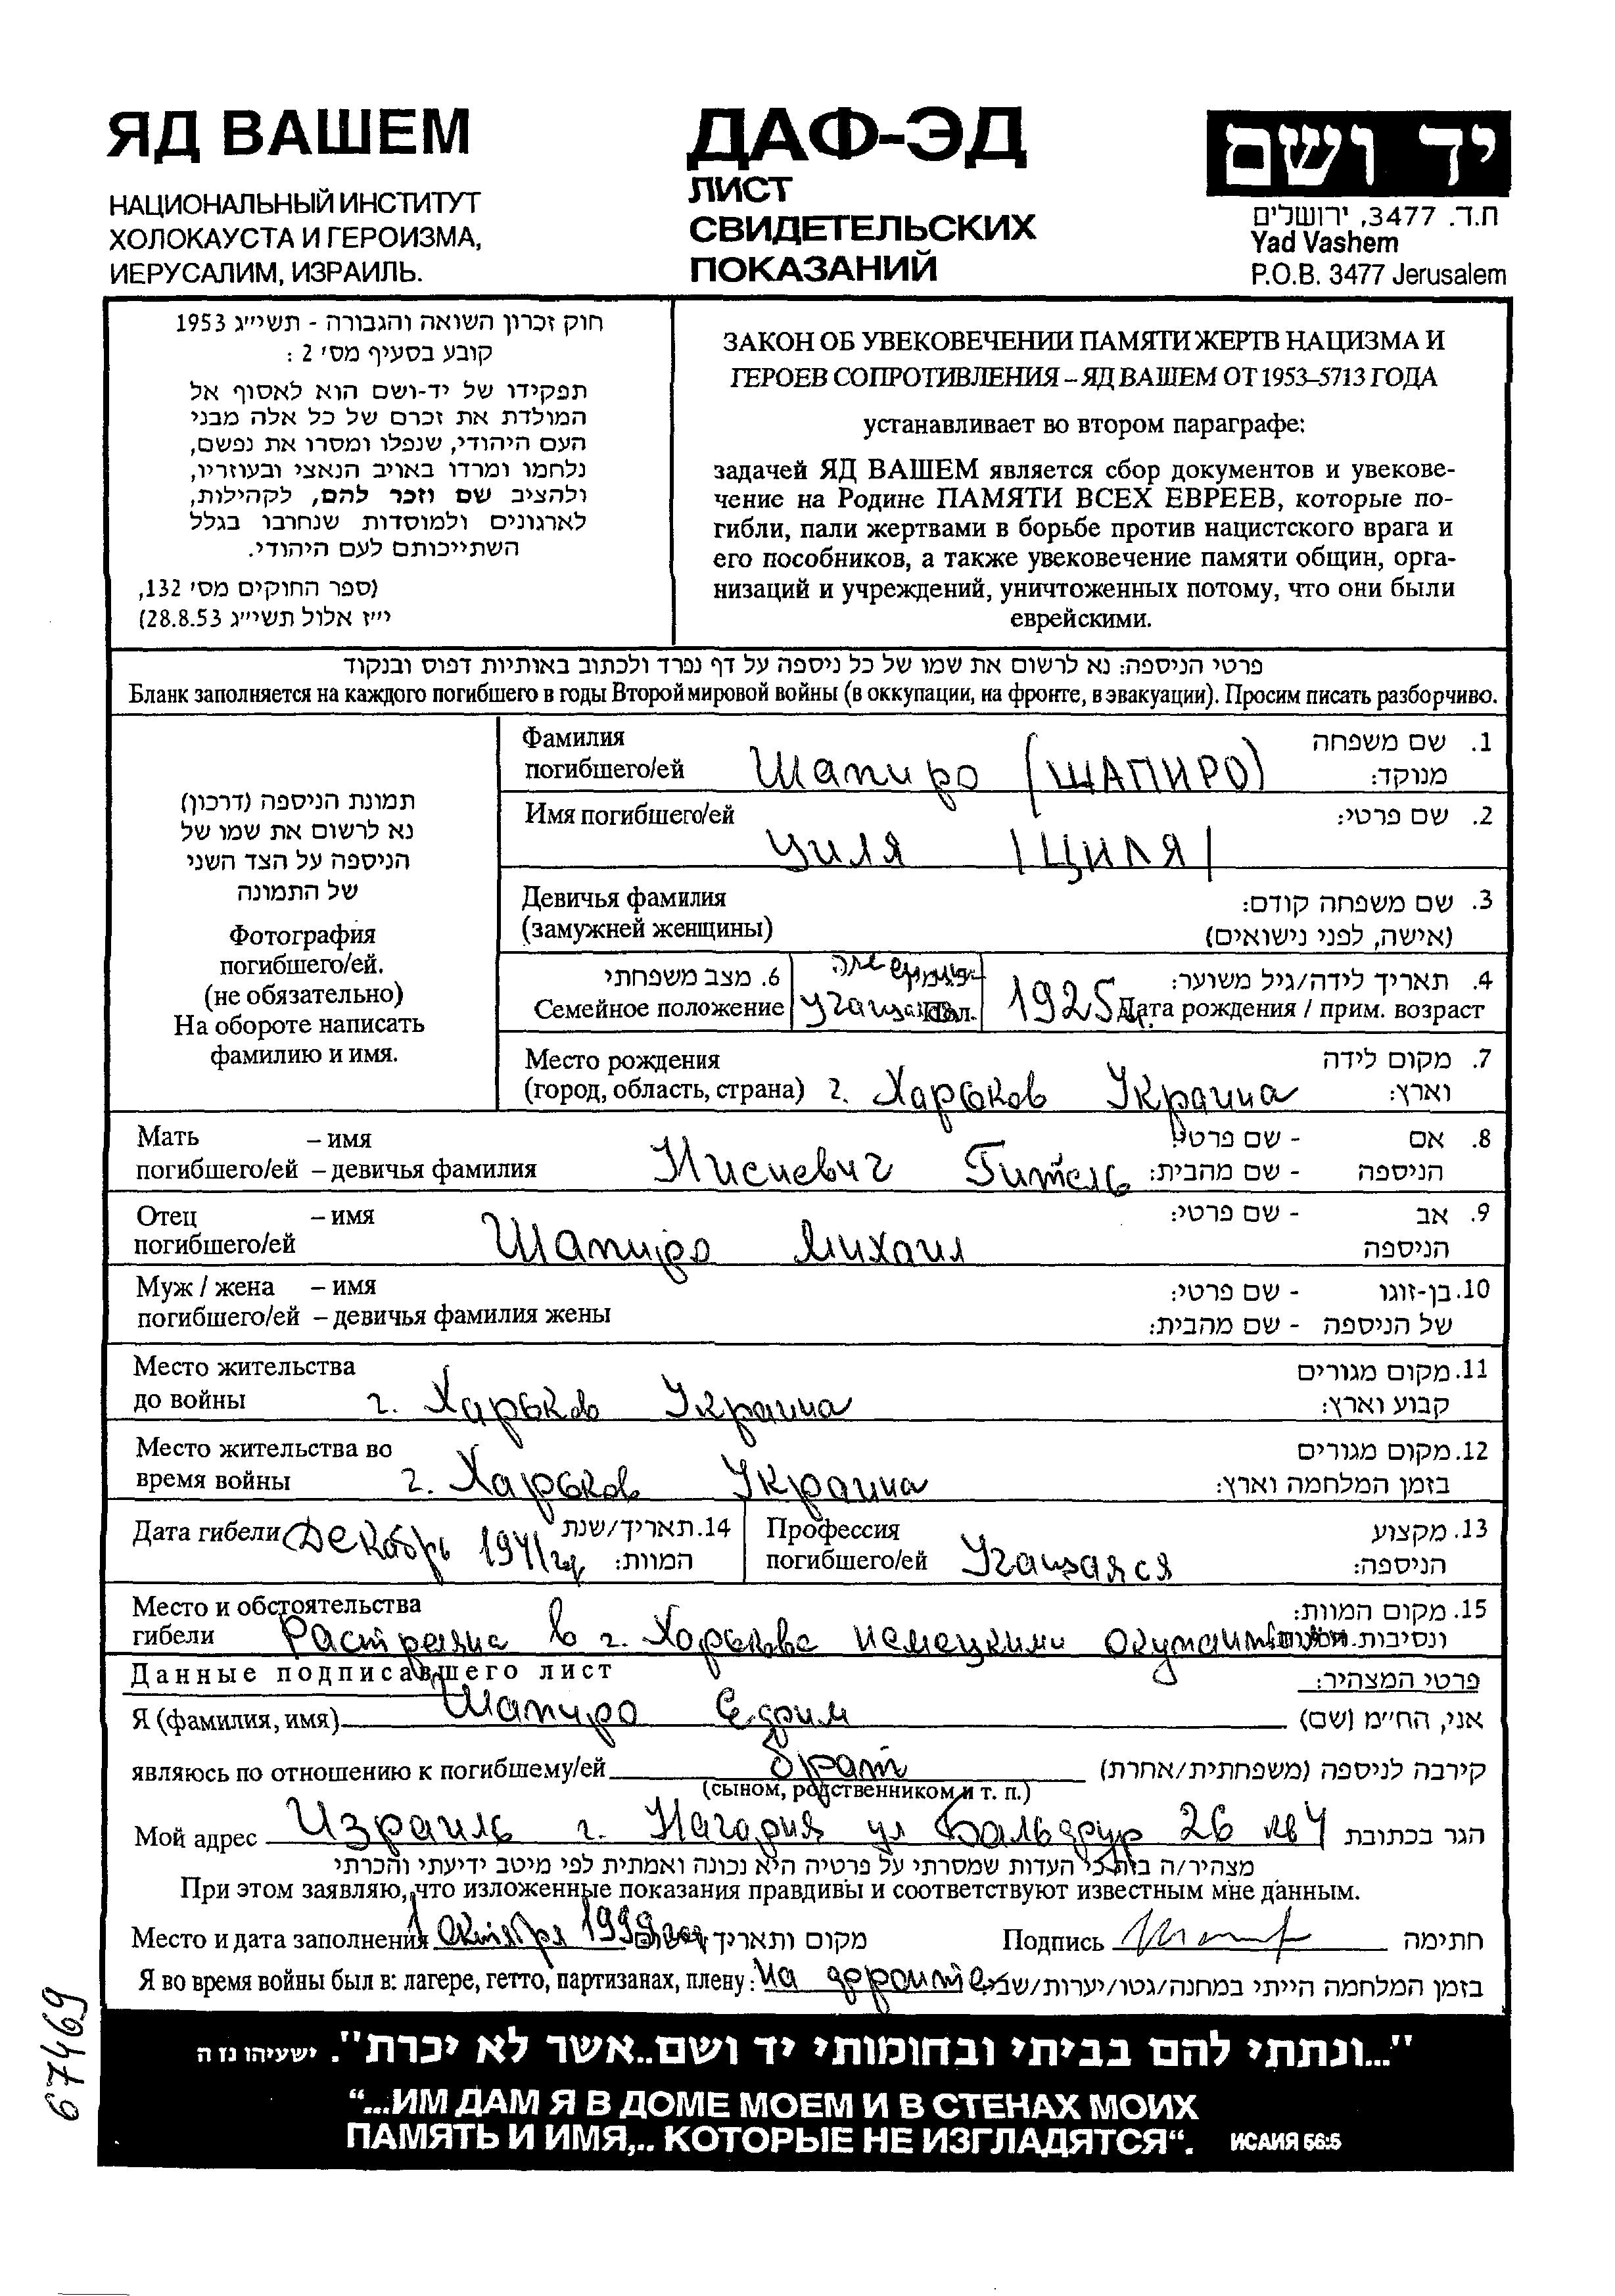 ЯД ВАШЕМ
НАЦИОНАЛЬНЫЙ ИНСТИТУТ
ХОЛОКАУСТА И ГЕРОИЗМА,
ИЕРУСАЛИМ, ИЗРАИЛЬ.
ДАФ-ЭД
ЛИСТ
СВИДЕТЕЛЬСКИХ
ПОКАЗАНИЙ
יד ושם
ת.ד. 3477, ירושלים
Yad Vashem
P.O.B. 3477 Jerusalem
חוק זכרון השואה והגבורה - תשי״ג 1953
קובע בסעיף מס׳ 2 :
תפקידו של יד-ושם הוא לאסוף אל
המולדת את זכרם של כל אלה מבני
העם היהודי, שנפלו ומסרו את נפשם,
נלחמו ומרדו באויב הנאצי ובעוזריו,
ולהציב שם וזכר להם, לקהילות,
לארגונים ולמוסדות שנחרבו בגלל
השתייכותם לעם היהודי.
(ספר החוקים מס׳ 132,
י״ז אלול תשי״ג 28.8.53)
ЗАКОН ОБ УВЕКОВЕЧЕНИИ ПАМЯТИ ЖЕРТВ НАЦИЗМА И
ГЕРОЕВ СОПРОТИВЛЕНИЯ – ЯД ВАШЕМ ОТ 1953–5713 ГОДА
устанавливает во втором параграфе:
задачей ЯД ВАШЕМ является сбор документов и увекове-
чение на Родине ПАМЯТИ ВСЕХ ЕВРЕЕВ, которые по-
гибли, пали жертвами в борьбе против нацистского врага и
его пособников, а также увековечение памяти общин, орга-
низаций и учреждений, уничтоженных потому, что они были
еврейскими.
פרטי הניספה: נא לרשום את שמו של כל ניספה על דף נפרד ולכתוב באותיות דפוס ובנקוד
Бланк заполняется на каждого погибшего в годы Второй мировой войны (в оккупации, на фронте, в эвакуации). Просим писать разборчиво.
תמונת הניספה (דרכון)
נא לרשום את שמו של
הניספה על הצד השני
של התמונה
Фотография
погибшего/ей.
(не обязательно)
На обороте написать
фамилию и имя.
Фамилия שם משפחה .1
погибшего/ей Шапиро (ШАПИРО) מנוקד:
Имя погибшего/ей שם פרטי: .2
Циля |ЦИЛЯ|
Девичья фамилия שם משפחה קודם: .3
(замужней женщины) (אישה, לפני נישואים)
6. מצב משפחתי תאריך לידה/גיל משוער: .4
Семейное положение учащаяся 1925 Дата рождения / прим. возраст
Место рождения מקום לידה .7
(город, область, страна) г. Харьков Украина וארץ:
Мать – имя - שם פרטי: אם .8
погибшего/ей – девичья фамилия Нисневич Гитель - שם מהבית: הניספה
Отец – имя - שם פרטי: אב .9
погибшего/ей Шапиро Михаил הניספה
Муж / жена – имя - שם פרטי: בן-זוגו .10
погибшего/ей – девичья фамилия жены - שם מהבית: של הניספה
Место жительства מקום מגורים .11
до войны г. Харьков Украина קבוע וארץ:
Место жительства во מקום מגורים .12
время войны г. Харьков Украина בזמן המלחמה וארץ:
Дата гибели Декабрь 1941 14. תאריך/שנת המוות:
Профессия מקצוע .13
погибшего/ей Учащаяся הניספה:
Место и обстоятельства מקום המוות: .15
гибели Растреляна в г. Харькове немецкими окупантами ונסיבות
Данные подписавшего лист פרטי המצהיר:
Я (фамилия, имя) Шапиро Ефим אני, הח״מ (שם)
являюсь по отношению к погибшему/ей брат קירבה לניספה (משפחתית/אחרת)
(сыном, родственником и т. п.)
Мой адрес Израиль г. Нагария ул 26 кв 4 הגר בכתובת
מצהיר/ה בזה כי העדות שמסרתי על פרטיה היא נכונה ואמתית לפי מיטב ידיעתי והכרתי
При этом заявляю, что изложенные показания правдивы и соответствуют известным мне данным.
Место и дата заполнения 1 октября 1999 מקום ותאריך Подпись חתימה
Я во время войны был в: лагере, гетто, партизанах, плену: на фронте בזמן המלחמה הייתי במחנה/גטו/יערות/שבי
67469
"...ונתתי להם בביתי ובחומותי יד ושם..אשר לא יכרת". ישעיהו נז ה
“...ИМ ДАМ Я В ДОМЕ МОЕМ И В СТЕНАХ МОИХ
ПАМЯТЬ И ИМЯ,.. КОТОРЫЕ НЕ ИЗГЛАДЯТСЯ“. ИСАИЯ 56:5